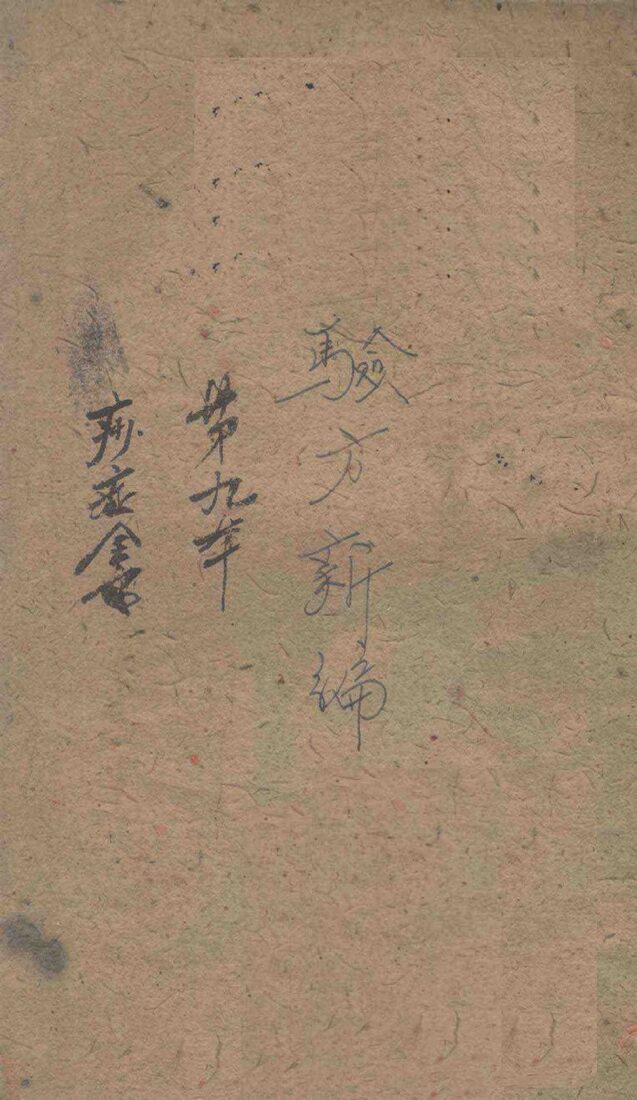 驗方新編
第九本
痧症全书